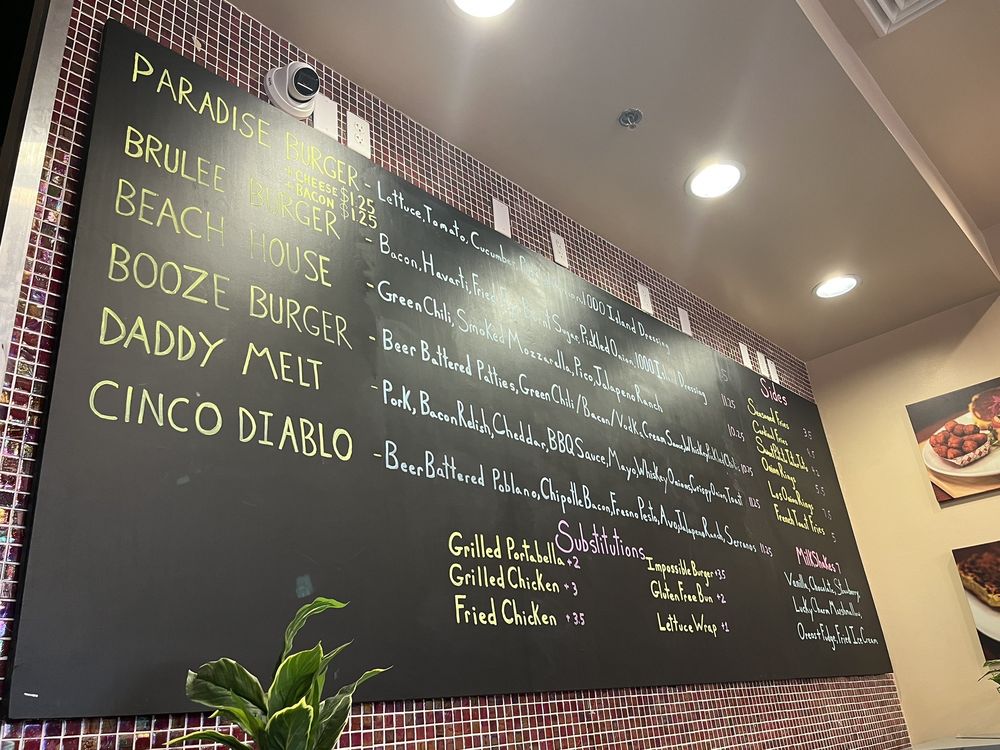 PARADISE BURGER - Lettuce, Tomato, Cucumber, 1000 Island Dressing
+ CHEESE $1.25
+ BACON $1.25
BRULEE BURGER - Bacon, Havarti, Fried Egg, Burnt Sugar, Pickled Onion, 1000 Island Dressing
BEACH HOUSE - Green Chili, Smoked Mozzarella, Pico, Jalapeno Ranch
BOOZE BURGER - Beer Battered Patties, Green Chili/Bacon/Vodka Cream Sauce, Whisky Pickled Chili
DADDY MELT - Pork, Bacon Relish, Cheddar, BBQ Sauce, Mayo, Whiskey Onions, Crispy Onion, Toast
CINCO DIABLO - Beer Battered Poblano, Chipotle Bacon, Fresno Pesto, Avo, Jalapeno Ranch, Serranos 11.25
Substitutions
Grilled Portabella +2
Grilled Chicken +3
Fried Chicken +3.5
Impossible Burger +3.5
Gluten Free Bun +2
Lettuce Wrap +1
Sides
Seasoned Fries 3.5
Cocktail Fries
Onion Rings
Onion Rings
French Toast Fries 5
Milkshakes 7
Vanilla, Chocolate, Strawberry
Lucky Charm Marshmallow,
Oreo + Fudge, Fried Ice Cream